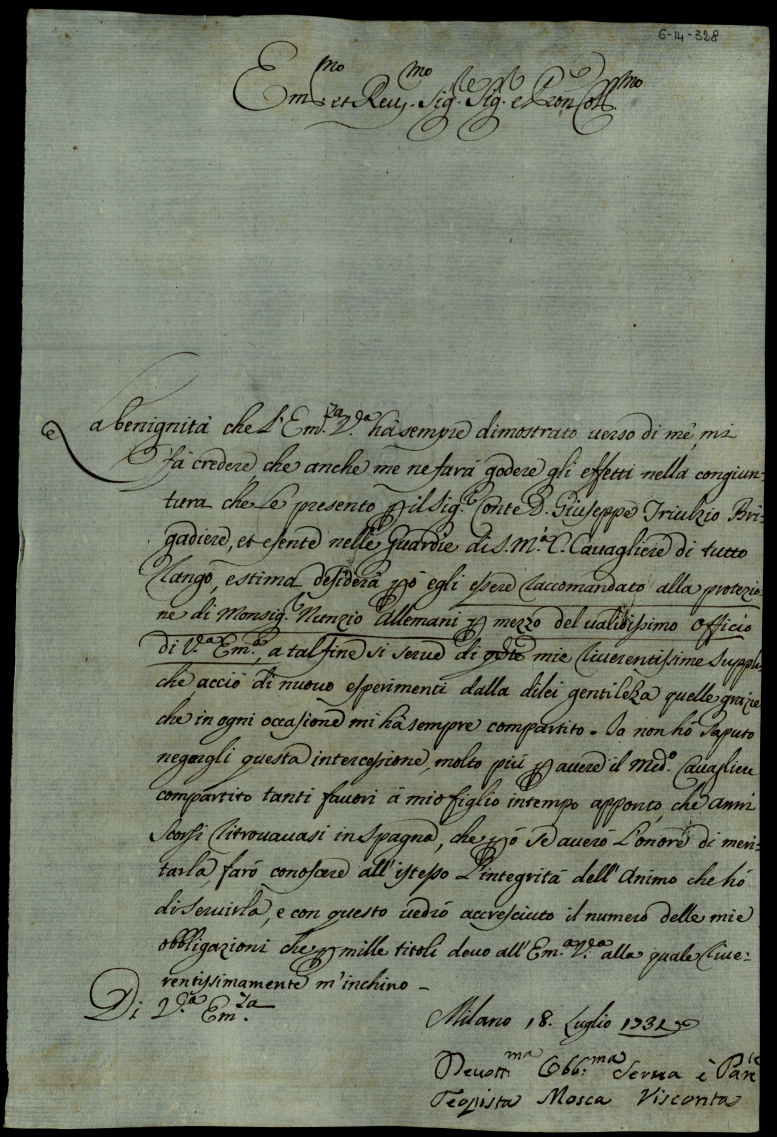 6-14-328
Em.mo et Rev.mo Sig.re Sig.re e P.ron Col.mo
La benignità che l'Em.za V.ra hà sempre dimostrato verso di me, mi
fà credere che anche me ne farà godere gli effetti nella congiun-
tura che le presento p il Sig.r Conte D. Giuseppe Triulzio Bri-
gadiere, et esente nelle Guardie di S. M.à C. Cavagliere di tutto
rango, e stima desidera pò egli essere raccomandato alla protezio-
ne di Monsig.r Nunzio Allemani p mezzo del validissimo officio
di V.ra Em.za, a tal fine si serve di mie riverentissime suppli-
che, acciò di nuovo esperimenti dalla dilei gentilezza quelle grazie
che in ogni occasione mi hà sempre compartito. Io non hò saputo
negargli questa intercessione, molto più p avere il med.o Cavagliere
compartito tanti favori à mio figlio in tempo apponto, che anni
scorsi ritrovavasi in Spagna, che pò se averò l'onore di meri-
tarla, farò conoscere all'istesso l'integrità dell'Animo che hò
di servirla, e con questo vedrò accresciuto il numero delle mie
obbligazioni che p mille titoli devo all'Em.a V.ra alla quale rive-
rentissimamente m'inchino -
Di V.ra Em.za
Milano 18. Luglio 1731
Devott.ma Obb.ma Serva e Par.te
Teopista Mosca Visconta